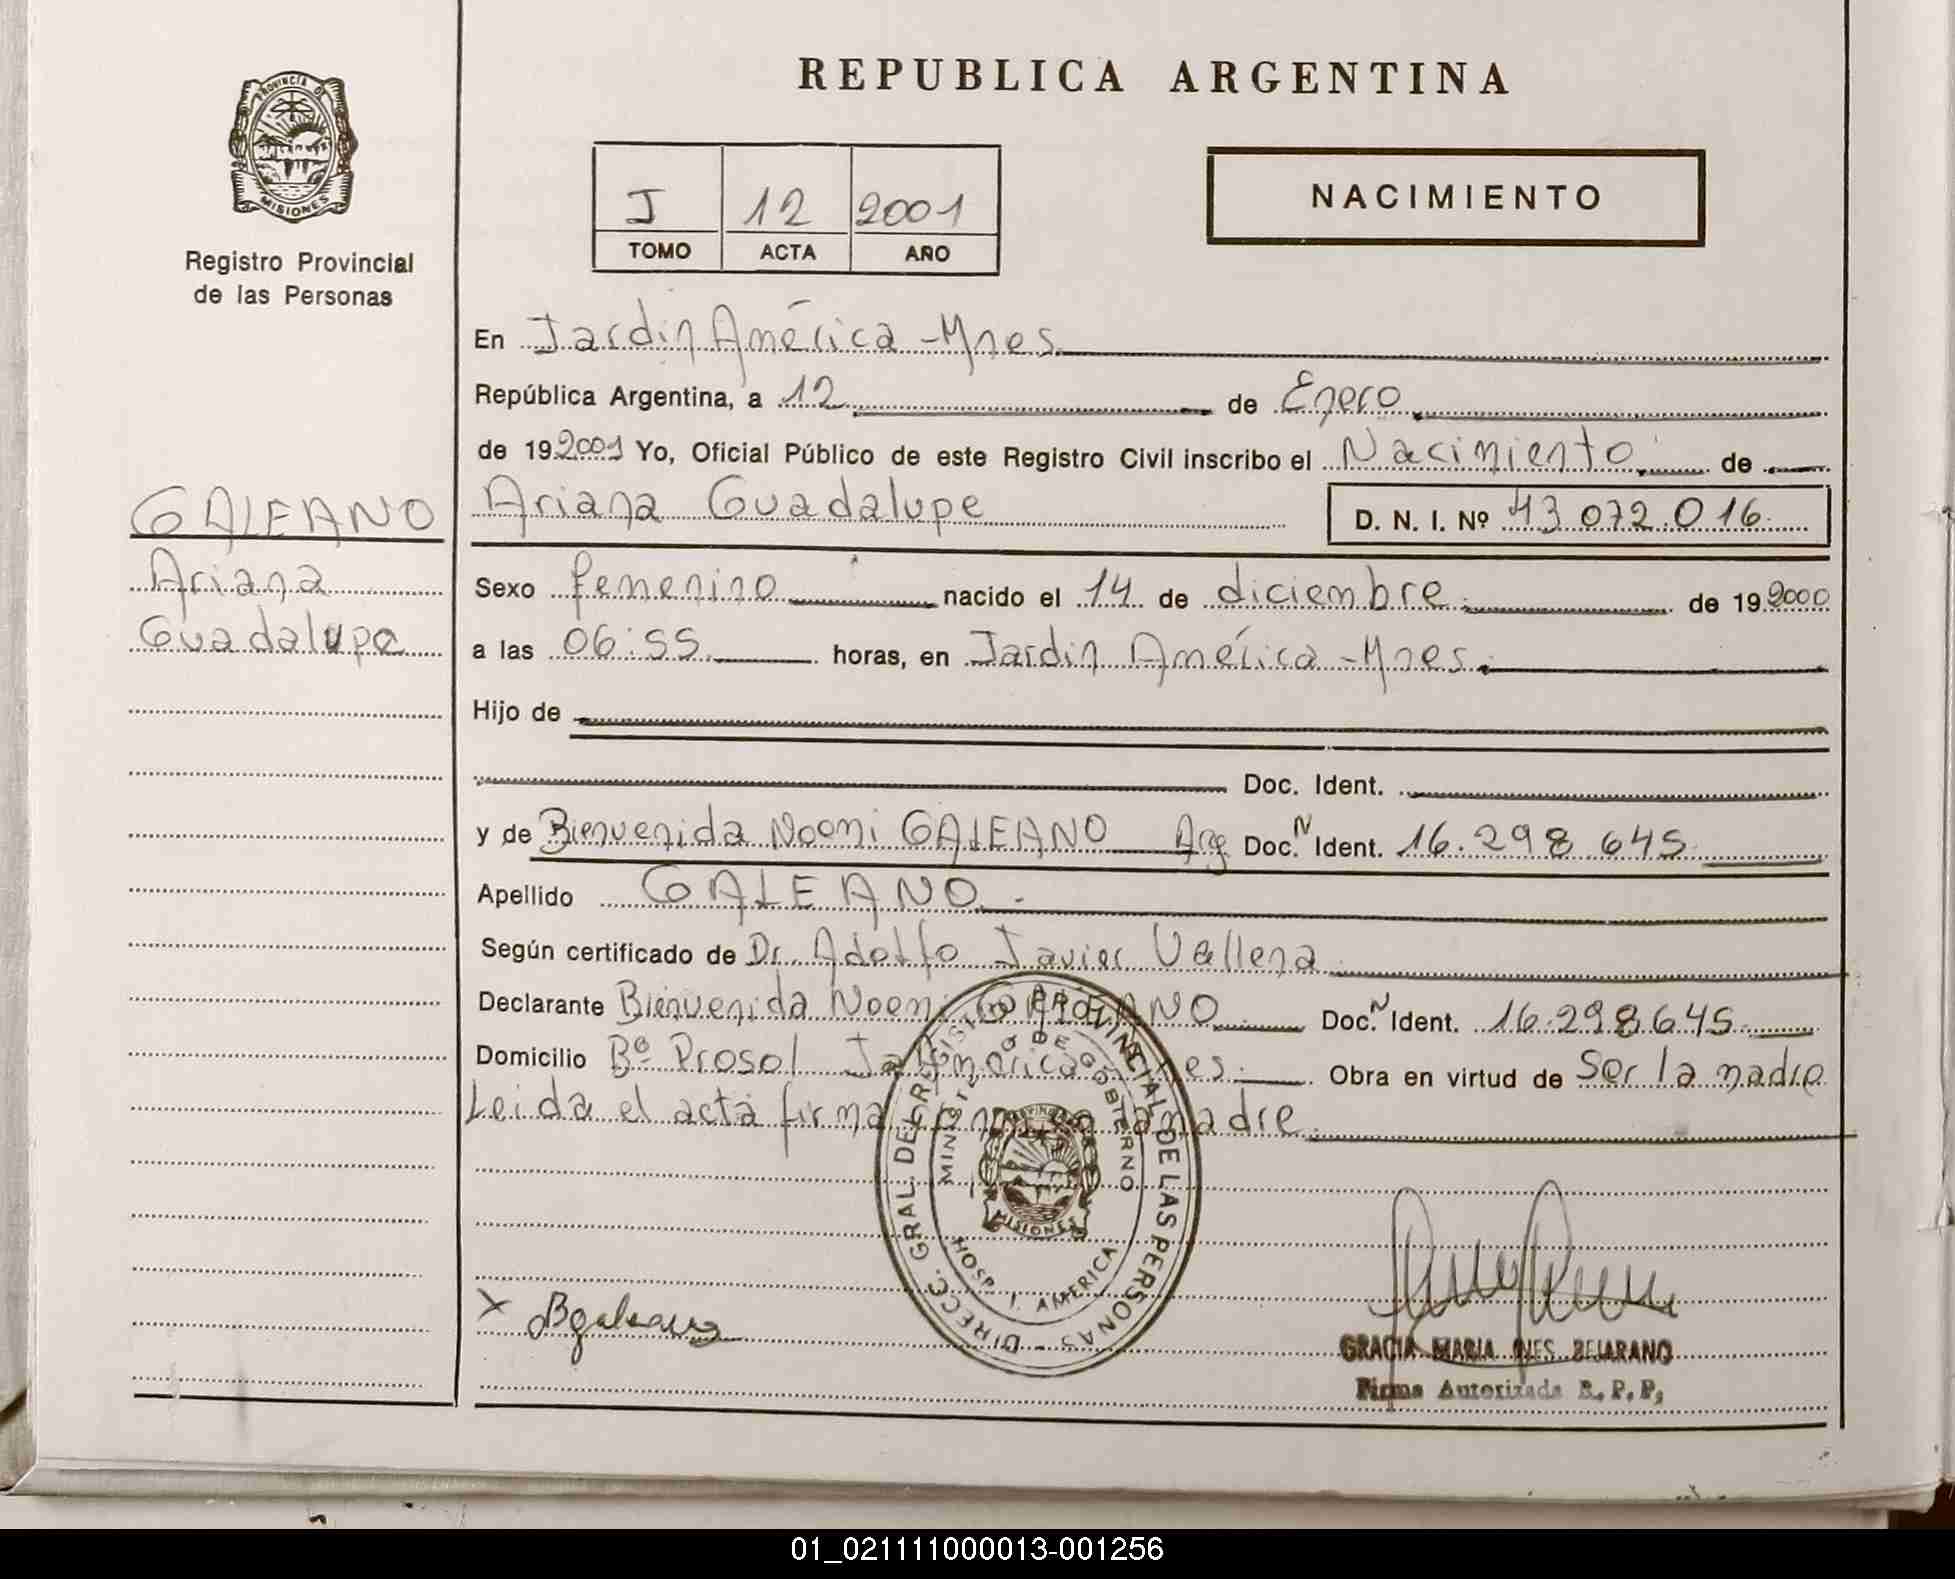 REPUBLICA ARGENTINA
PROVINCIA DE
MISIONES
Registro Provincial
de las Personas
J 12 2001
TOMO ACTA AÑO
NACIMIENTO
En Jardin América - Mnes.
República Argentina, a 12 de Enero
de 192001 Yo, Oficial Público de este Registro Civil inscribo el Nacimiento de
GALEANO
Ariana
Guadalupe
Ariana Guadalupe D. N. I. Nº 43.072.016.
Sexo femenino nacido el 14 de diciembre de 192000
a las 06:55 horas, en Jardin América - Mnes.
Hijo de
Doc. Ident.
y de Bienvenida Noemi GALEANO Arg Doc.N Ident. 16.298.645
Apellido GALEANO.-
Según certificado de Dr. Adolfo Javier Vallena
Declarante Bienvenida Noemi GALEANO Doc.N Ident. 16.298.645
Domicilio Bº Prosol J. América Mnes. Obra en virtud de Ser la madre
Leida el acta firma la madre.
DIRECC. GRAL. DEL REGISTRO PROVINCIAL DE LAS PERSONAS -
MINISTERIO DE GOBIERNO
PROVINCIA
MISIONES
HOSP. J. AMERICA
X Bgaleano
GRACIA MARIA INES BEJARANO
Firma Autorizada R. P. P.
01_021111000013-001256